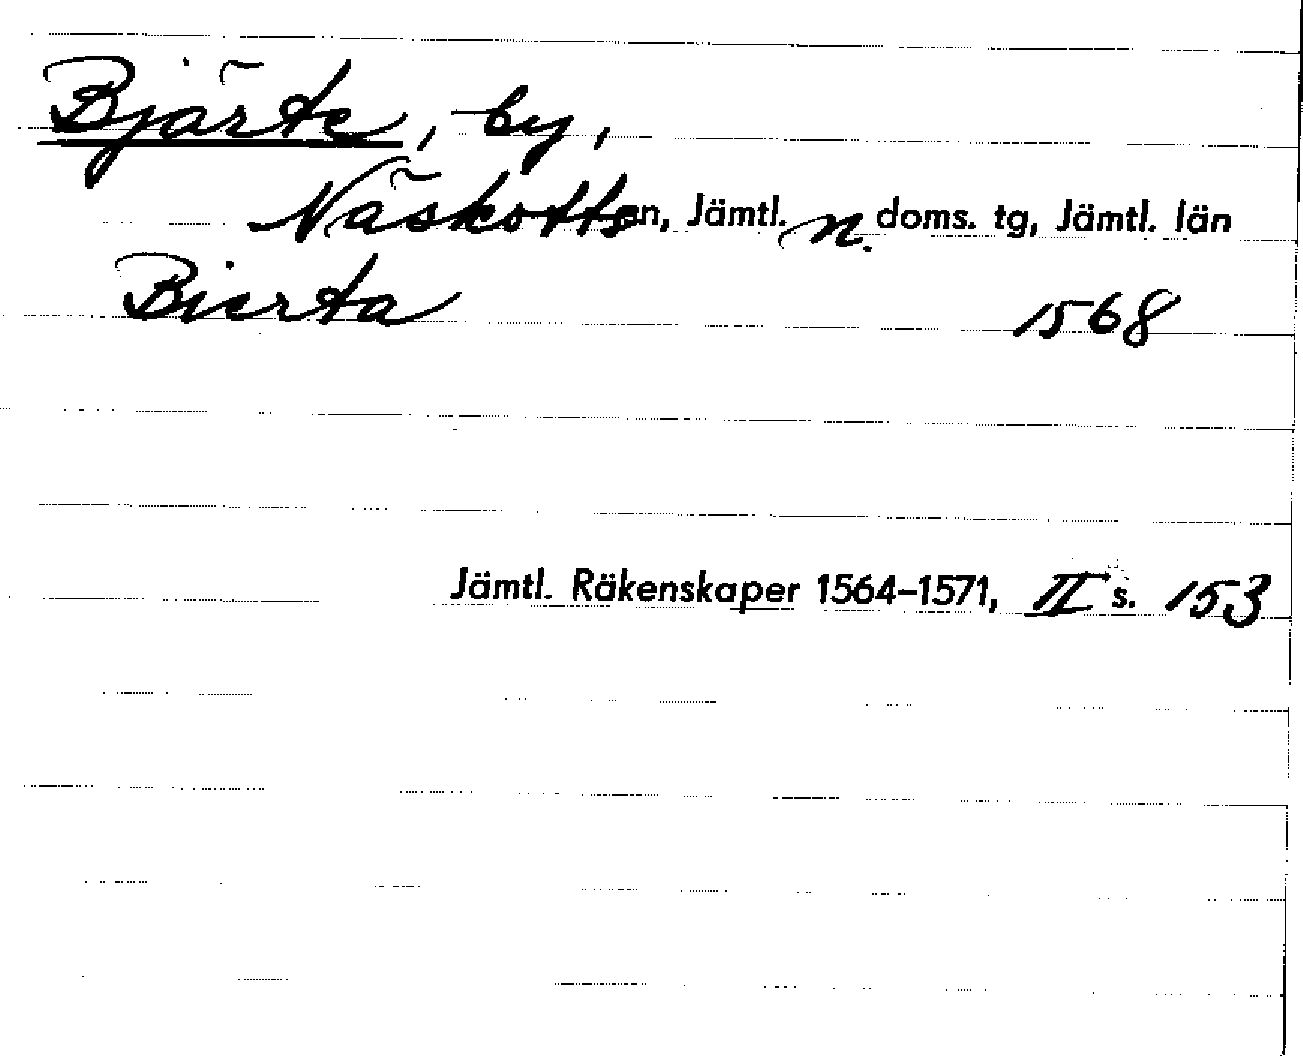 Bjärte, by,
Näskotts sn, Jämtl. n. doms. tg, Jämtl. län
Bierta 1568
Jämtl. Räkenskaper 1564-1571, II s. 153